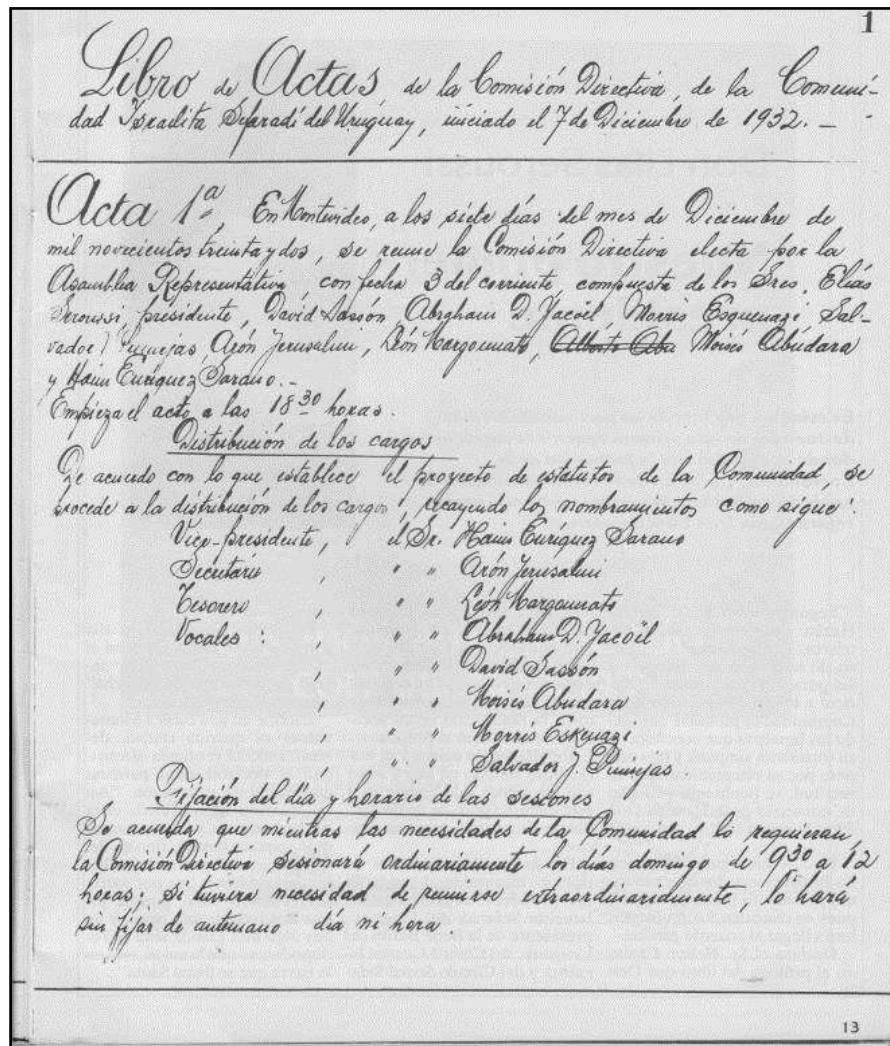 1
Libro de Actas de la Comisión Directiva, de la Comuni-
dad Israelita Sefaradí del Uruguay, iniciado el 7 de Diciembre de 1932. —
Acta 1ª, En Montevideo, a los siete días del mes de Diciembre de
mil novecientos treinta y dos, se reune la Comisión Directiva electa por la
Asamblea Representativa, con fecha 3 del corriente, compuesta de los Sres. Elías
Seroussi, presidente, David Sassón, Abraham D. Jacöil, Morris Esquenazi, Sal-
vador J. Pinnejas, Arón Jerusalmi, León Margounato, Alberto Abu Moisés Abudara
y Haim Euriquez Sarano. —
Empieza el acto a las 18 30 horas.
Distribución de los cargos
De acuerdo con lo que establece el proyecto de estatutos de la Comunidad, se
procede a la distribución de los cargos, recayendo los nombramientos como sigue:
Vice-presidente, el Sr. Haim Euriquez Sarano
Secretario , " " Arón Jerusalmi
Tesorero , " " León Margounato
Vocales : , " " Abraham D. Jacöil
, " " David Sassón
, " " Moisés Abudara
, " " Morris Eskenazi
, " " Salvador J. Pinnejas
Fijación del día y horario de las sesiones
Se acuerda que mientras las necesidades de la Comunidad lo requieran,
la Comisión Directiva sesionará ordinariamente los días domingo de 9 30 a 12
horas; si tuviera necesidad de reunirse extraordinariamente, lo hará
sin fijar de antemano día ni hora.
13